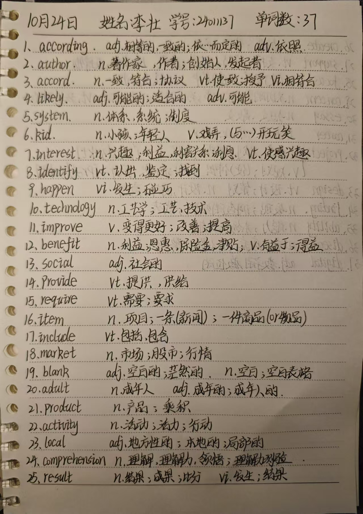 10月24日 姓名:李社 学号:24011137 单词数:37
1. according adj.相符的;一致的;依…而定的 adv.依照
2. author n.著作家,作者;创始人,发起者
3. accord. n.一致,符合;协议 vt.使一致;授予 vi.相符合
4. likely. adj.可能的;适合的 adv.可能
5. system n.体系;系统;制度
6. kid. n.小孩;年轻人 v.戏弄,(与…)开玩笑
7. interest n.兴趣;利益,利害关系;利息 vt.使感兴趣
8. identify vt.认出,鉴定;找到
9. happen vi.发生;碰巧
10. technology n.工艺学;工艺,技术
11. improve v.变得更好;改善;提高
12. benefit n.利益;恩惠;保险金,津贴; v.有益于;得益
13. social adj.社会的
14. Provide vt.提供,供给
15. require vt.需要;要求
16. Item n.项目;一条(新闻);一件商品(or物品)
17. include vt.包括,包含
18. market n.市场;股市;行情
19. blank adj.空白的;茫然的. n.空白;空白表格
20. adult n.成年人 adj.成年的;成年人的.
21. product n.产品;乘积
22. activity n.活动;活力;行动
23. local adj.地方性的;本地的;局部的
24. comprehension n.理解,理解力,领悟;理解力测验.
25. result n.结果;成果;比分 vi.发生;结果